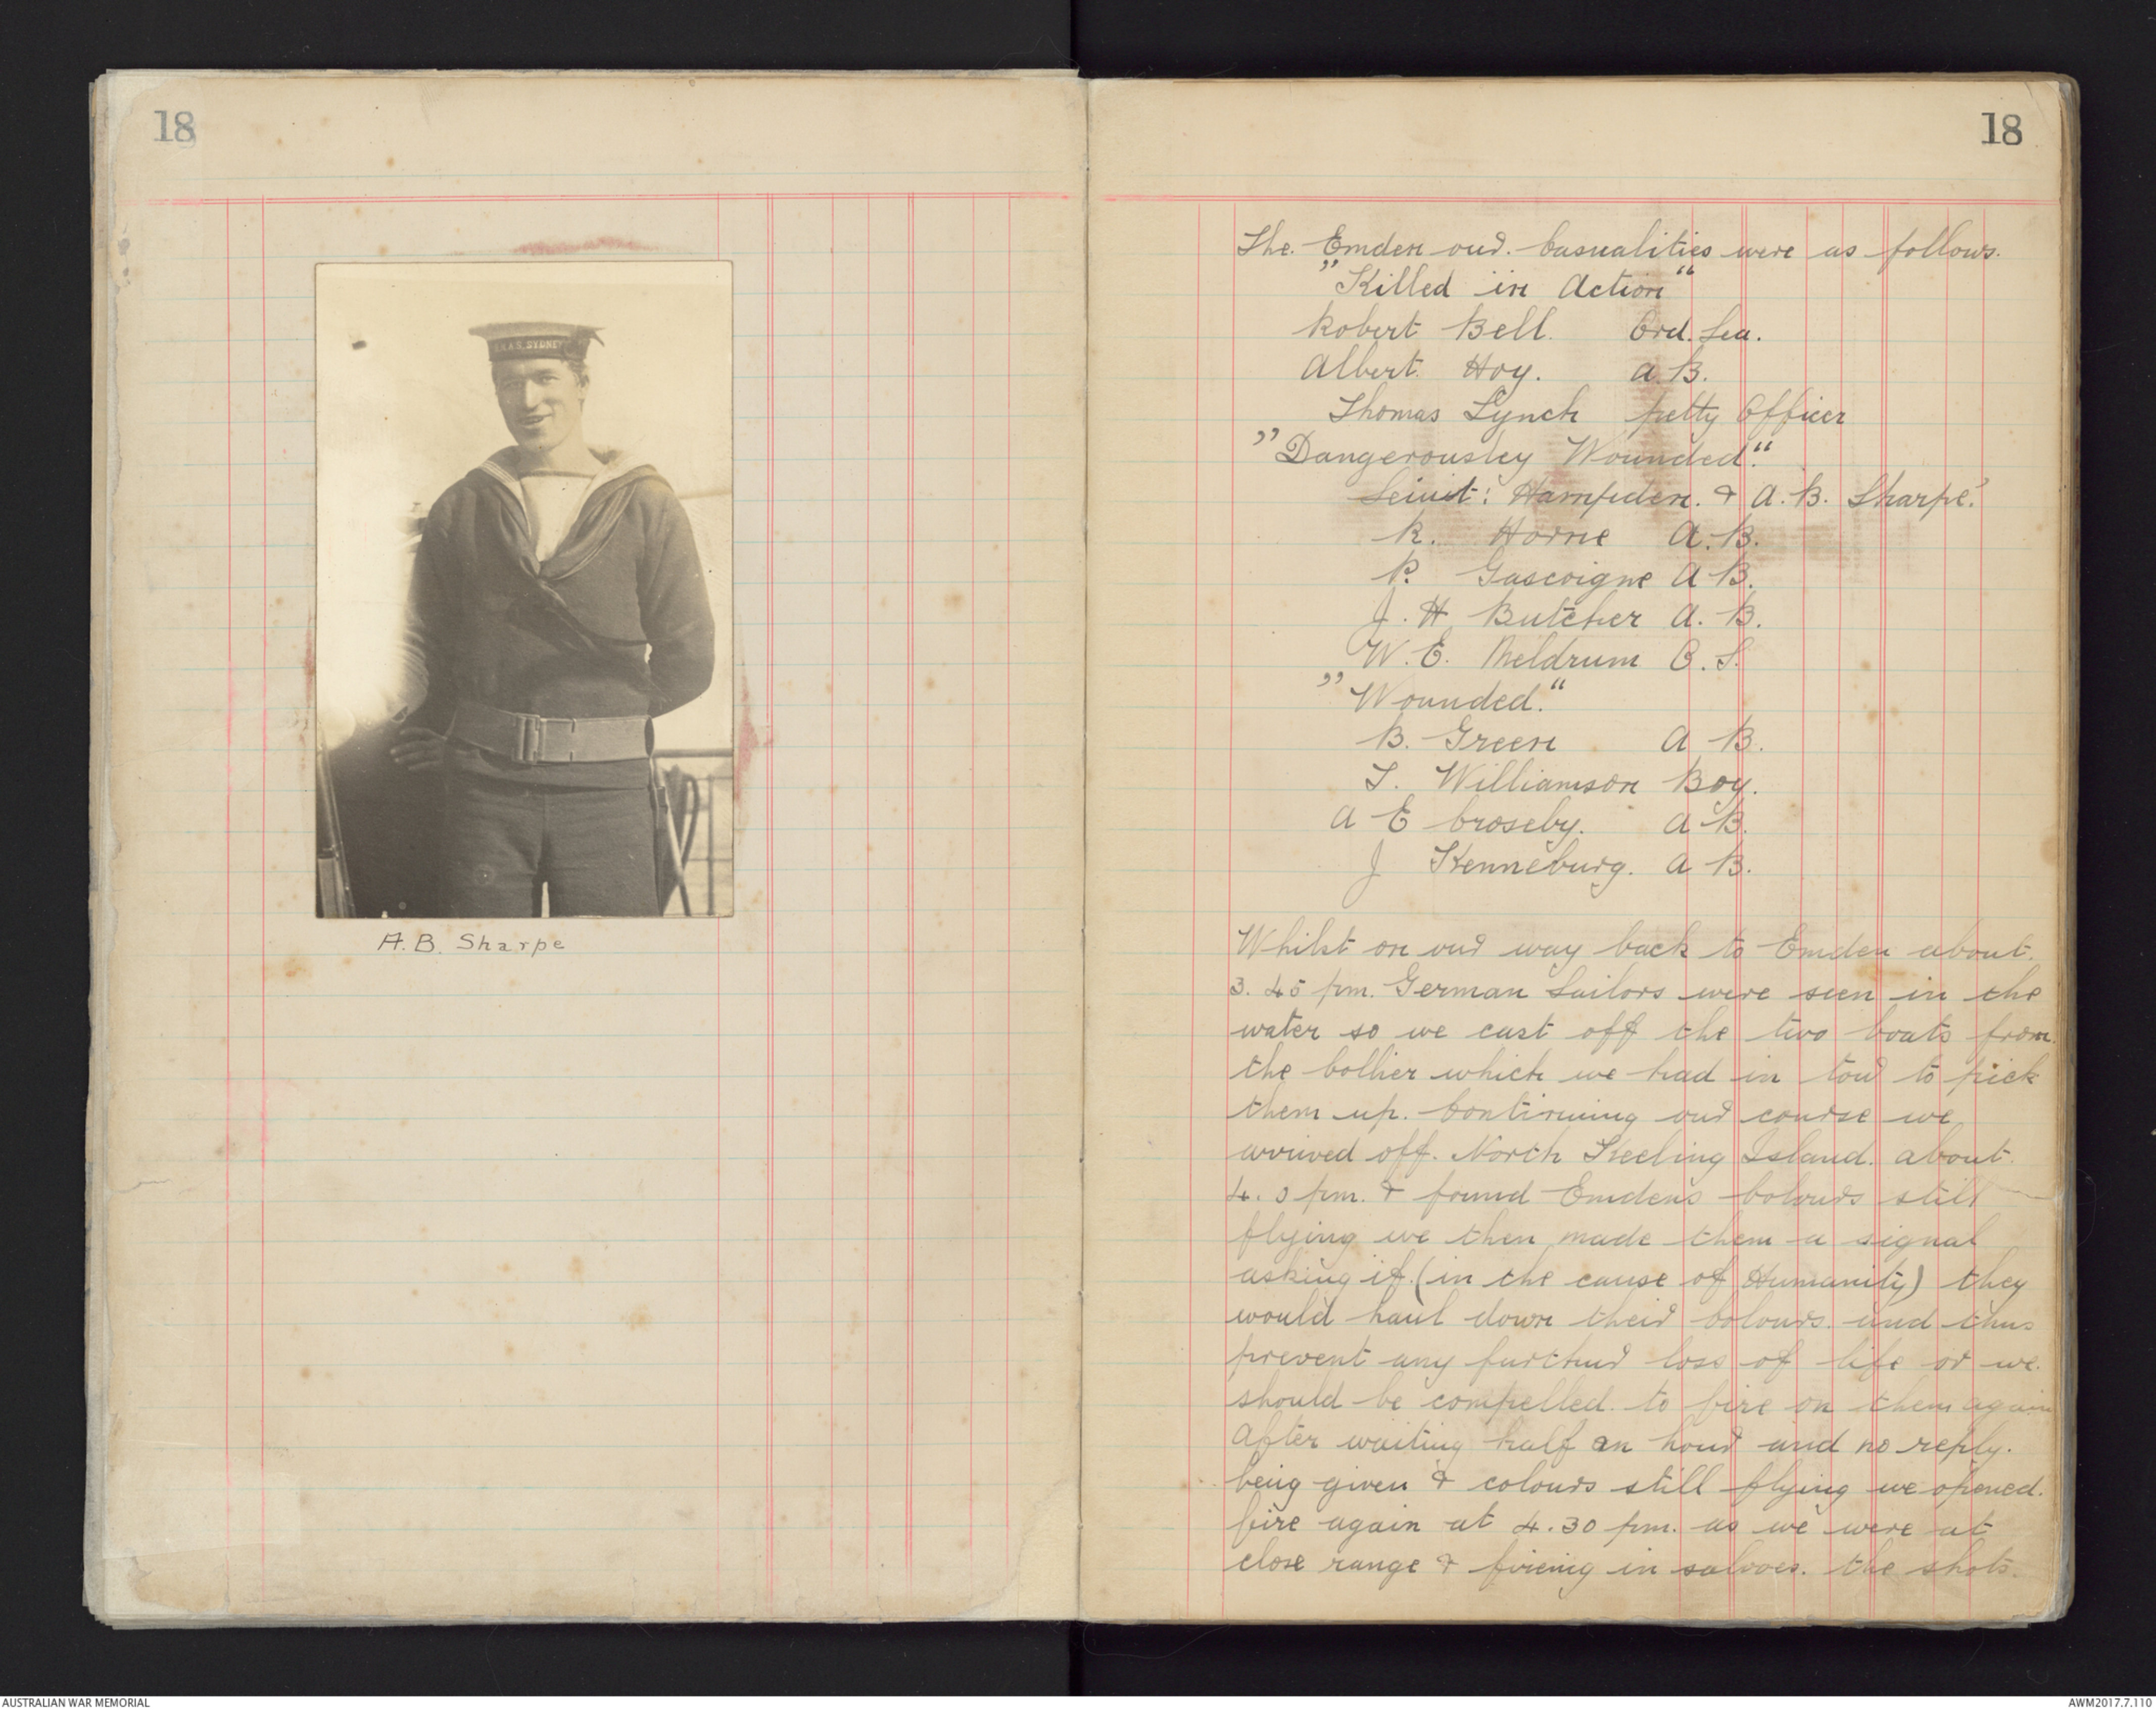 18
H.M.A.S. SYDNEY
A.B. Sharpe
18
The. Emden our. Casualities were as follows.
"Killed in Action"
Robert Bell. Ord. Sea.
Albert. Hoy. A.B.
Thomas Lynch petty Officer
"Dangerousley Wounded."
Leiut: Hampden. & A.B. Sharpe.
R. Horne A.B.
P. Gascoigne A B.
J. H Butcher A. B.
W. E. Meldrum O. S.
"Wounded."
B. Green A B.
T. Williamson Boy.
A E Croseby. A B.
J Kenneburg. A B.
Whilst on our way back to Emden about.
3. 45 pm. German Sailors were seen in the
water so we cast off the two boats from.
the Collier which we had in tow to pick
them up. Continuing our course we
arrived off. North Keeling Island. about.
4. 0 pm. & found Emdens Colours still
flying we then made them a signal
asking if. (in the cause of Humanity) they
would haul down their Colours. and thus
prevent any further loss of life or we.
should be compelled. to fire on them again
After waiting half an hour and no reply.
being given & colours still flying we opened.
fire again at 4.30 pm. as we were at
close range & fireing in salvoes. the shots.
AUSTRALIAN WAR MEMORIAL
AWM2017.7.110